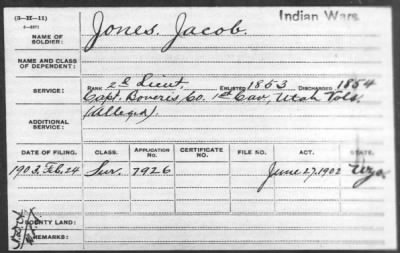 (3-II-11)
Indian Wars.
NAME OF SOLDIER: Jones, Jacob.
NAME AND CLASS OF DEPENDENT:
SERVICE: RANK 2d Lieut. ENLISTED 1853 DISCHARGED 1854
Capt. Co. 1st Cav, Utah Vols.
ADDITIONAL SERVICE: (Alleged).
DATE OF FILING. CLASS. APPLICATION No. CERTIFICATE NO. FILE NO. ACT. STATE.
1903, Feb, 24 Sur. 7926 June 27, 1902
BOUNTY LAND:
REMARKS: